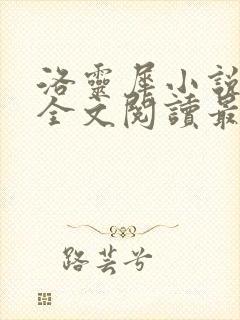 洛靈犀小說
全文閱讀最
路芸兮